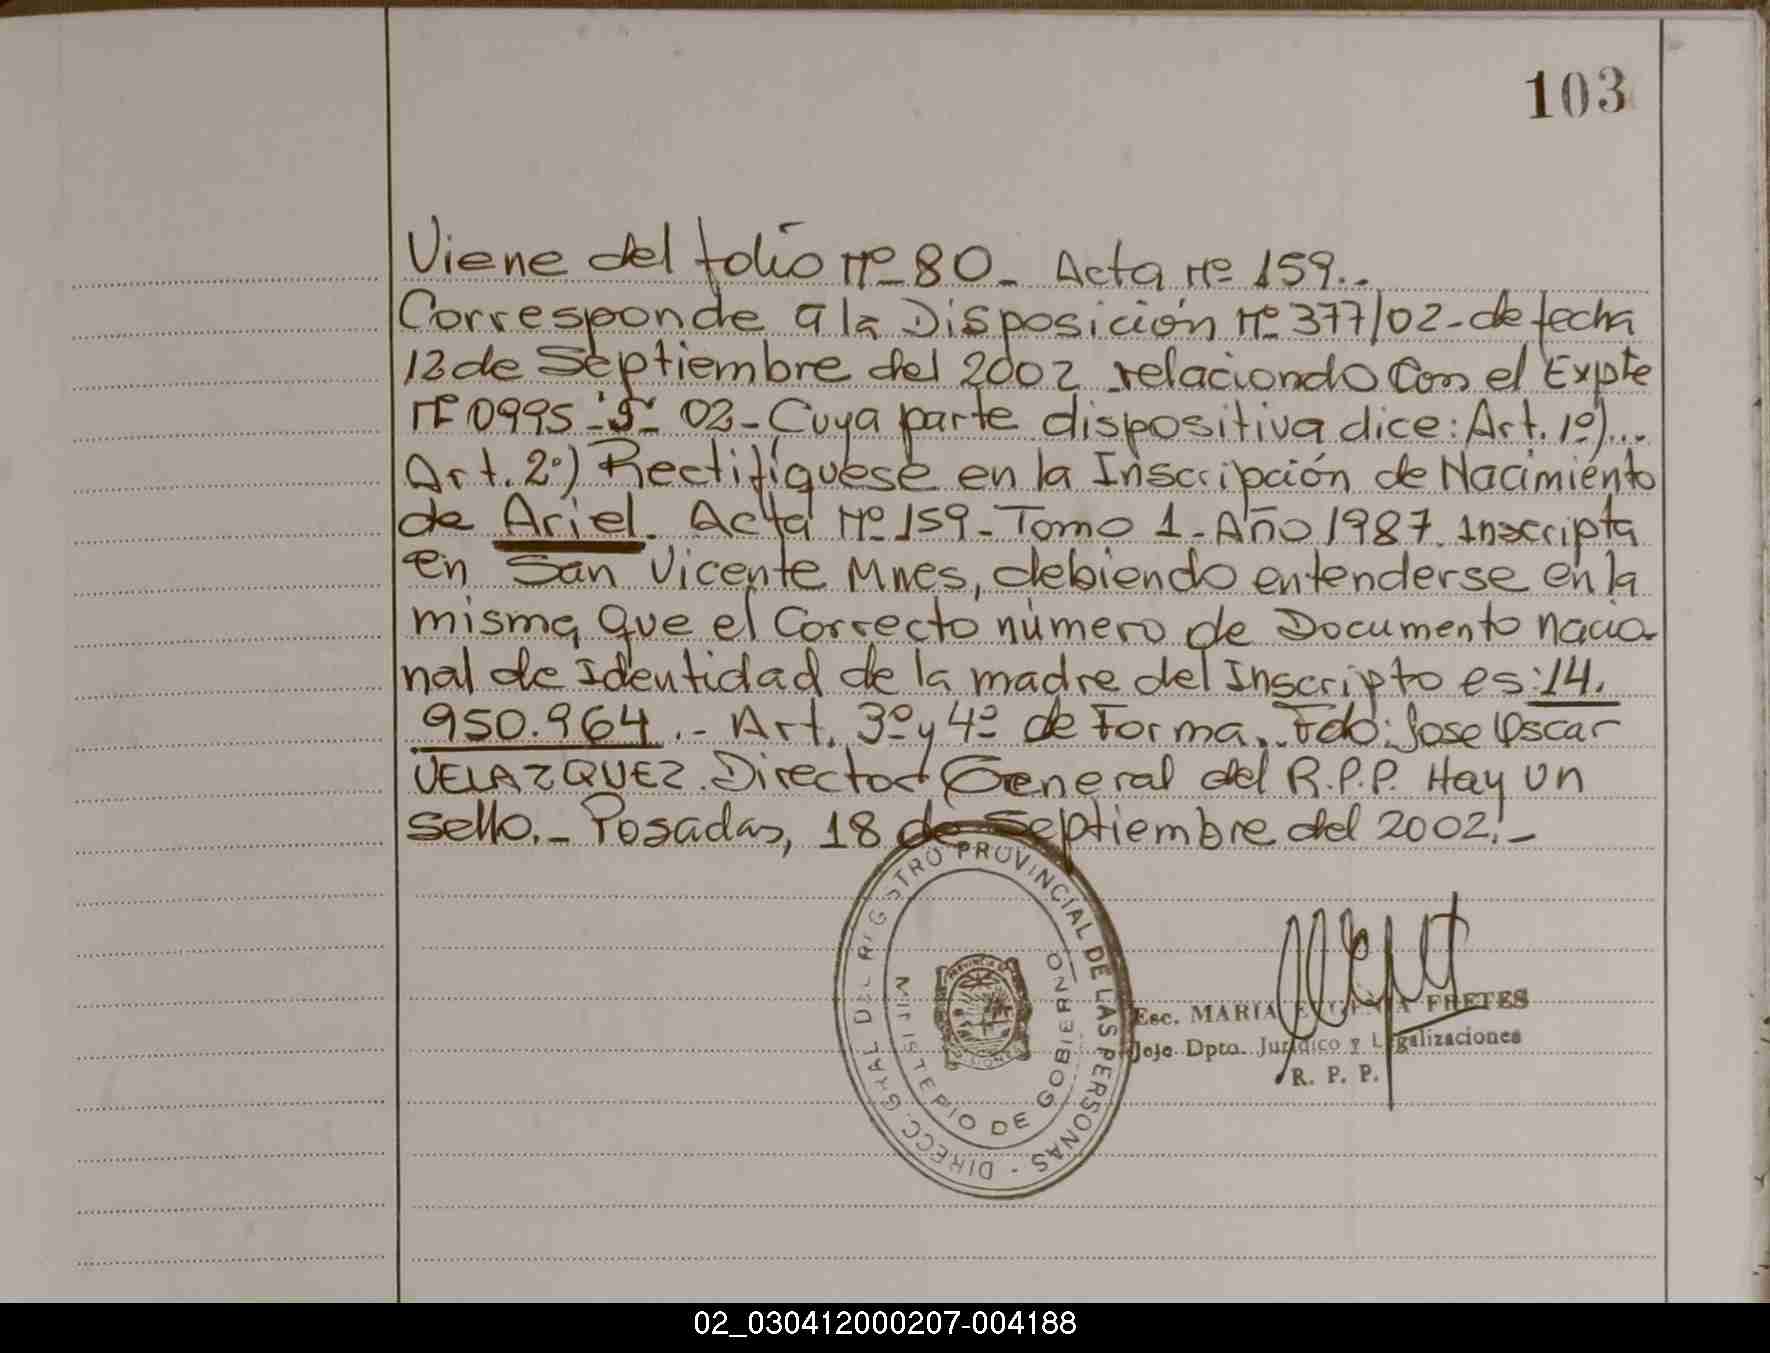 103
Viene del folio Nº 80_ Acta Nº 159..
Corresponde a la Disposición Nº 377/02-de fecha
12 de Septiembre del 2002 relaciondo Con el Expte
Nº 0995 - "S" 02 - Cuya parte dispositiva dice: Art. 1º)...
Art. 2º) Rectifíquese en la Inscripción de Nacimiento
de Ariel. Acta Nº 159 - Tomo 1 - Año 1987. Inscripta
en San Vicente Mnes, debiendo entenderse en la
misma que el Correcto número de Documento nacio-
nal de Identidad de la madre del Inscripto es: 14.
950.964.- Art. 3º y 4º de Forma. Fdo: Jose Oscar
VELAZQUEZ. Director General del R.P.P. Hay un
sello._ Posadas, 18 de Septiembre del 2002._
DIRECC. GRAL DEL REGISTRO PROVINCIAL DE LAS PERSONAS -
MINISTERIO DE GOBIERNO
Esc. MARIA EUGENIA FRETES
Jefe Dpto. Jurídico y Legalizaciones
R. P. P.
02_030412000207-004188